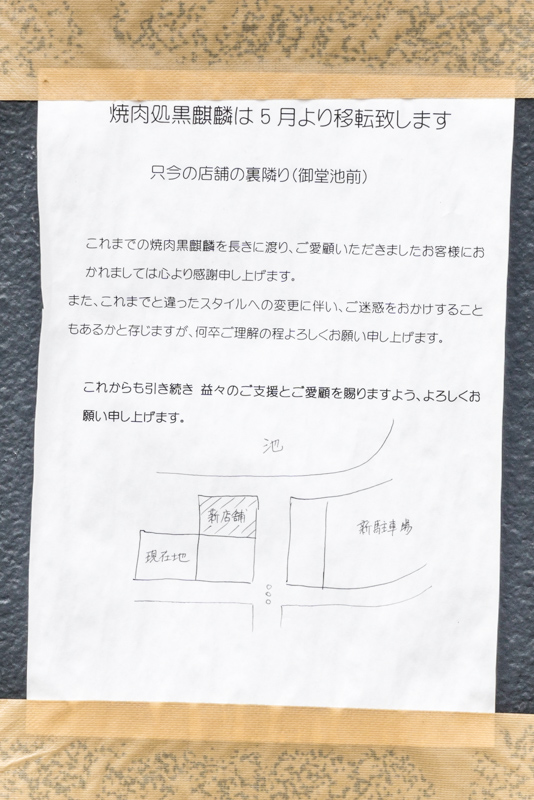 焼肉処黒麒麟は5月より移転致します
只今の店舗の裏隣り(御堂池前)
これまでの焼肉黒麒麟を長きに渡り、ご愛顧いただきましたお客様にお
かれましては心より感謝申し上げます。
また、これまでと違ったスタイルへの変更に伴い、ご迷惑をおかけすること
もあるかと存じますが、何卒ご理解の程よろしくお願い申し上げます。
これからも引き続き 益々のご支援とご愛顧を賜りますよう、よろしくお
願い申し上げます。
池
新店舗
新駐車場
現在地